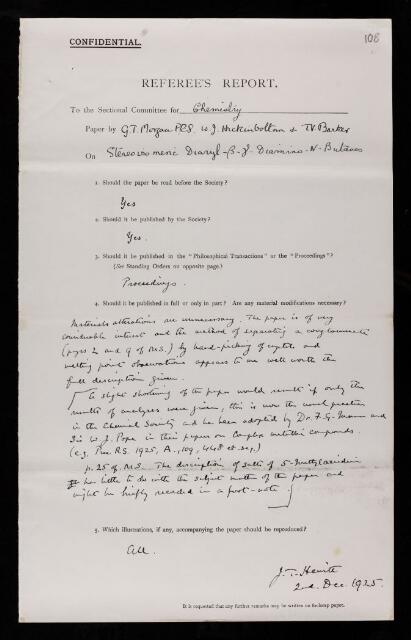 CONFIDENTIAL.
108
REFEREE'S REPORT.
To the Sectional Committee for Chemistry
Paper by G.T. Morgan F.R.S. W.J. Hickinbottom & T.V. Barker
On Stereoisomeric Diaryl-β-γ-Diamino-N-Butanes
1. Should the paper be read before the Society?
Yes
2. Should it be published by the Society?
Yes.
3. Should it be published in the "Philosophical Transactions" or the "Proceedings"?
(See Standing Orders on opposite page.)
Proceedings.
4. Should it be published in full or only in part? Are any material modifications necessary?
Material alterations are unnecessary. The paper is of very
considerable interest and the method of separating
(pages 2 and 9 of M.S.) by hand-picking of crystals and
melting point observations appears to me well worth the
full description given.
[A slight shortening of the paper would result if only the
results of analyses were given, this is now the usual practice
in the Chemical Society and has been adopted by Dr. F.G. Mann and
Sir W.J. Pope in their papers on Complex compounds.
(e.g. Proc. R.S. 1925, A., 109, 448 et seq.)
p. 25 of M.S. The description of salts of 5-
has little to do with the subject matter of the paper and
might be briefly recorded in a foot-note.]
5. Which illustrations, if any, accompanying the paper should be reproduced?
All.
J.T. Hewitt
2nd. Dec. 1925.
It is requested that any further remarks may be written on foolscap paper.